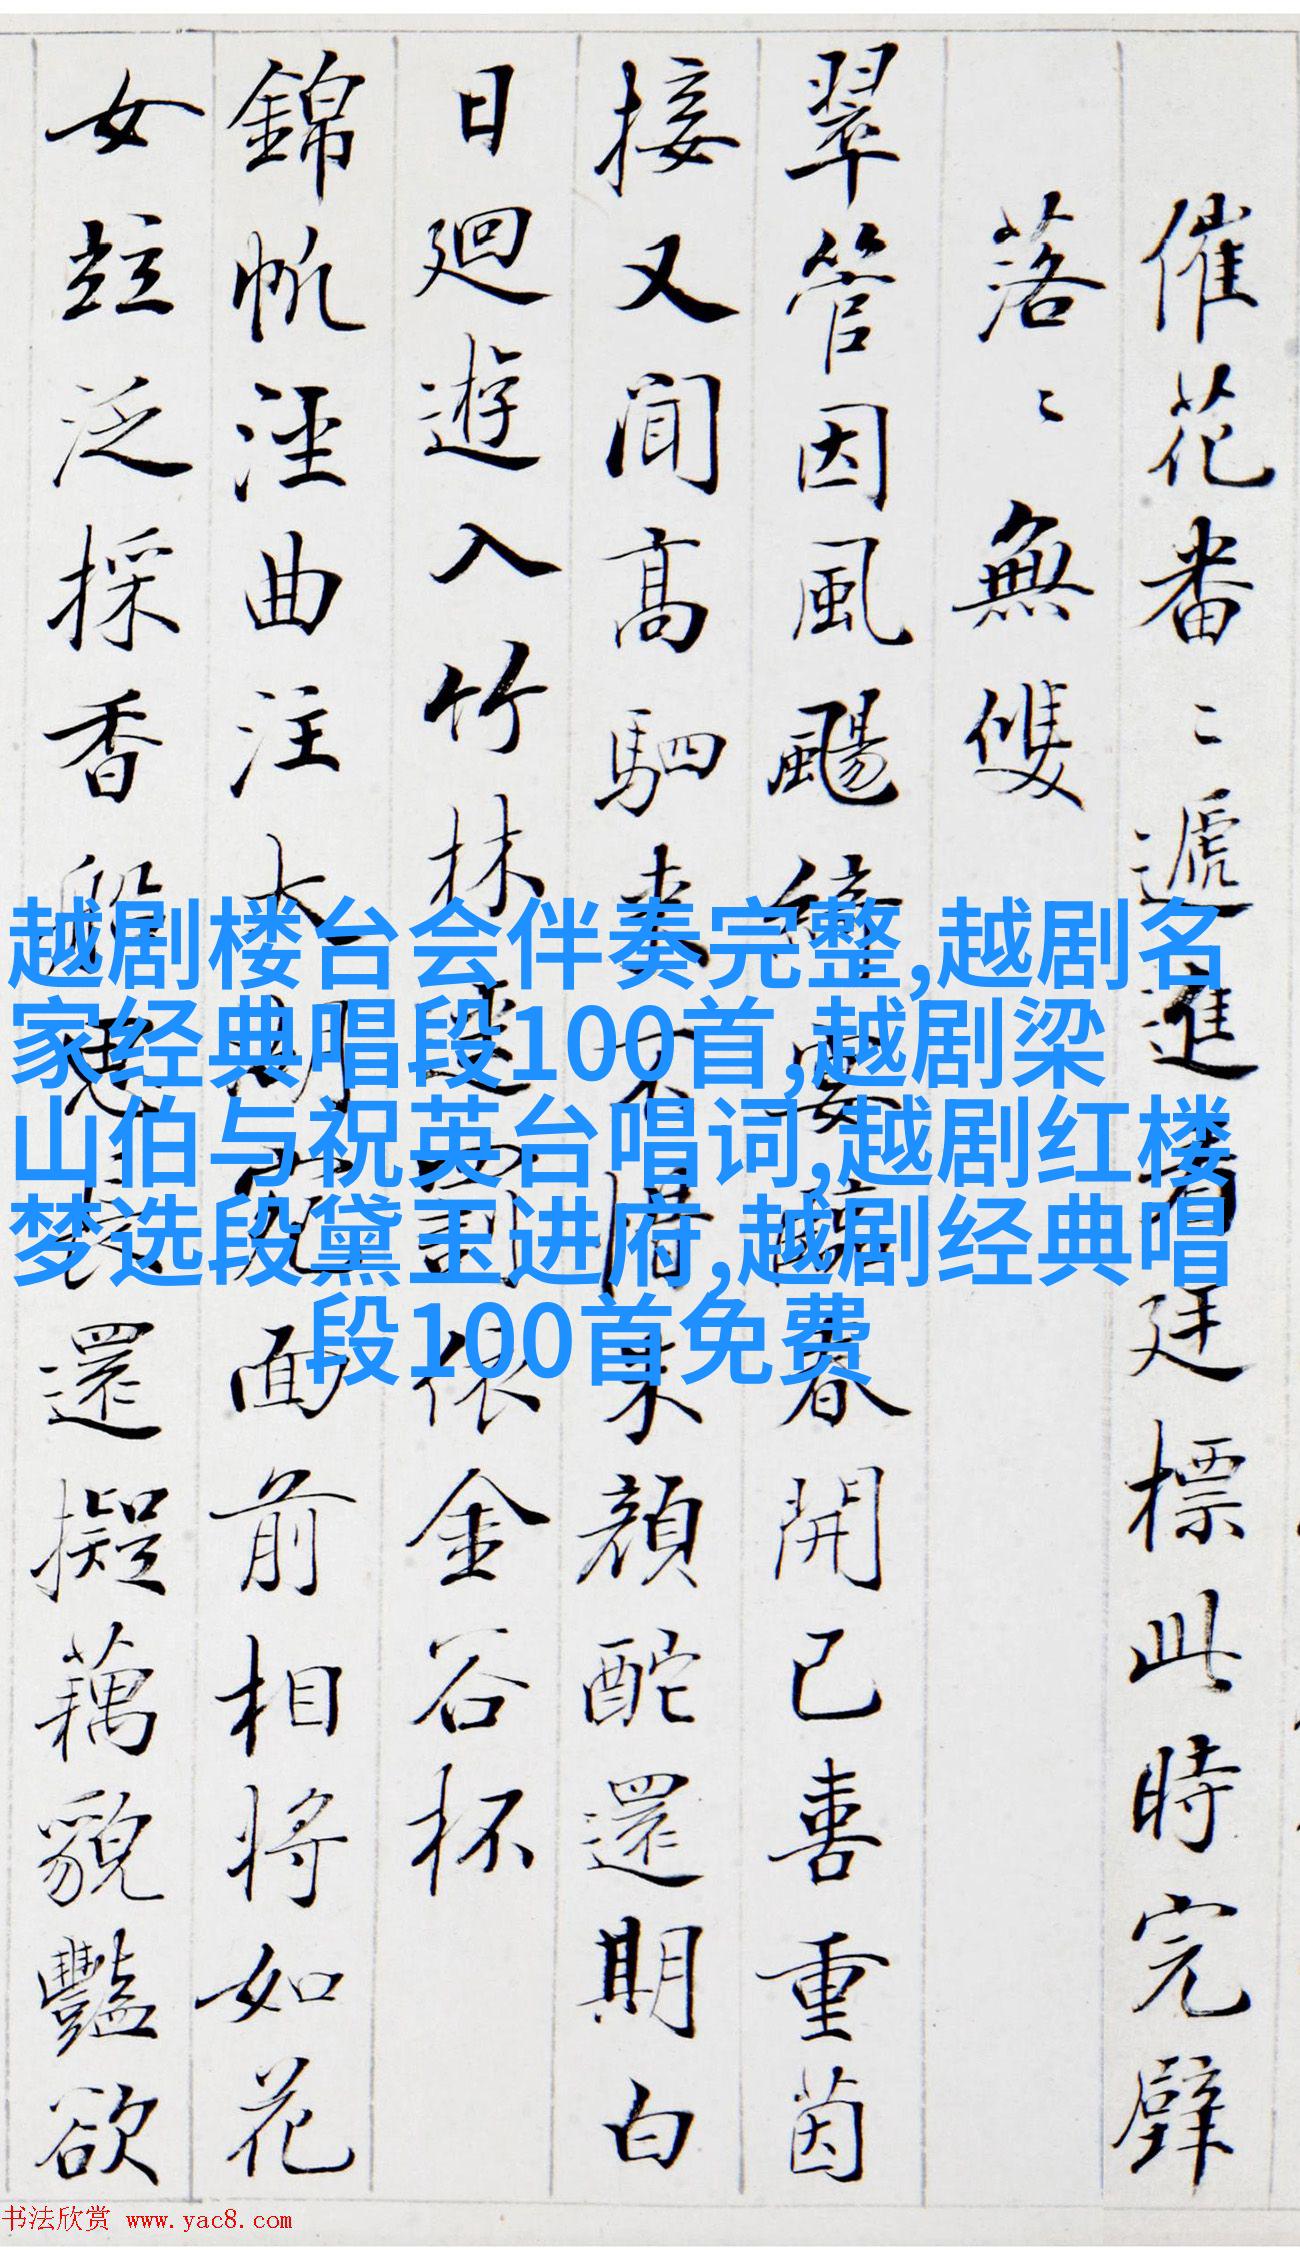 催花番〻遞進看廷標此時完璧
落〻無雙
翠管因風颺 春開已喜重茵
接又聞高駟来不惜朱顔酡還期白
日迴遊入竹林 依金谷杯
錦帆涇曲注 湖 面前相將如花
女竝泛採香 還擬藕貌豔欲
越剧楼台会伴奏完整,越剧名
家经典唱段100首,越剧梁
山伯与祝英台唱词,越剧红楼
梦选段黛玉进府,越剧经典唱
段100首免费
书法欣赏 www.yac8.com